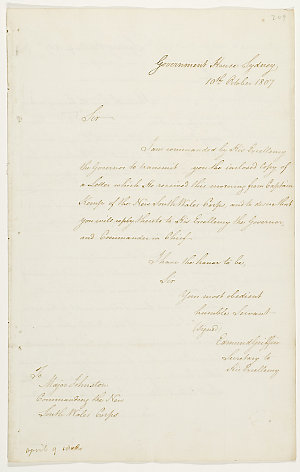 Government House Sydney
10th October 1807
Sir
I am commanded by His Excellency
the Governor to transmit you the inclosed Copy of
a Letter which He received this morning from Captain
Kemp of the New South Wales Corps, and to desire that
you will reply thereto to His Excellency the Governor
and Commander in Chief.
I have the honor to be,
Sir
Your most obedient
humble Servant
(Signed)
Edmund Griffin
Secretary to
His Excellency
To
Major Johnston
Commanding the New
South Wales Corps